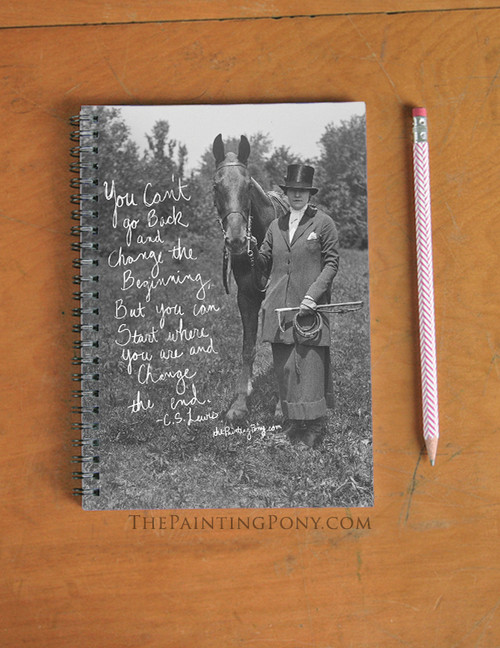 You Can't
go Back
and
Change the
Beginning,
But you can
Start where
you are and
Change
the end.
-C.S. Lewis
thePaintingPony.com
THEPAINTINGPONY.COM